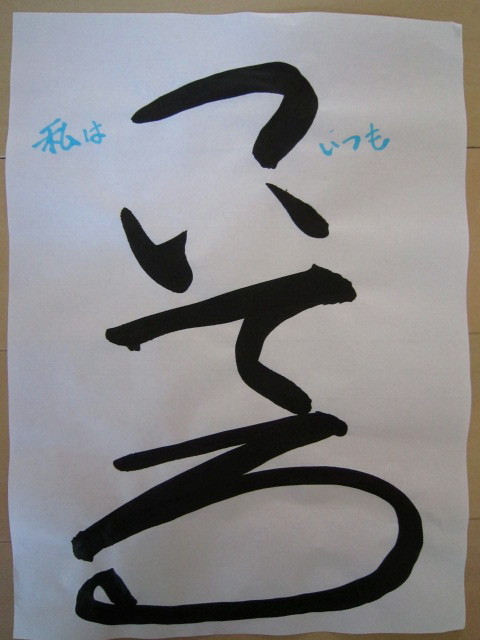 私は
いつも
ついてる